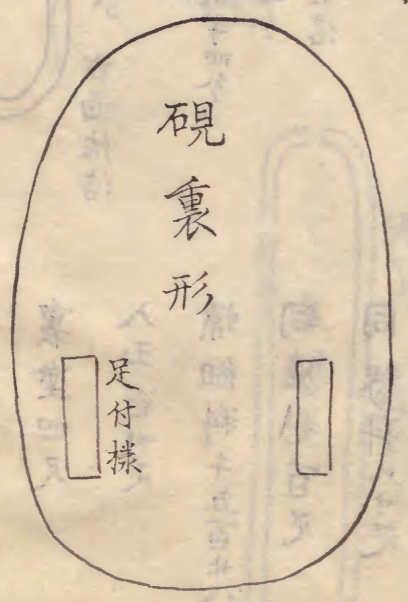 硯裏形
足付様